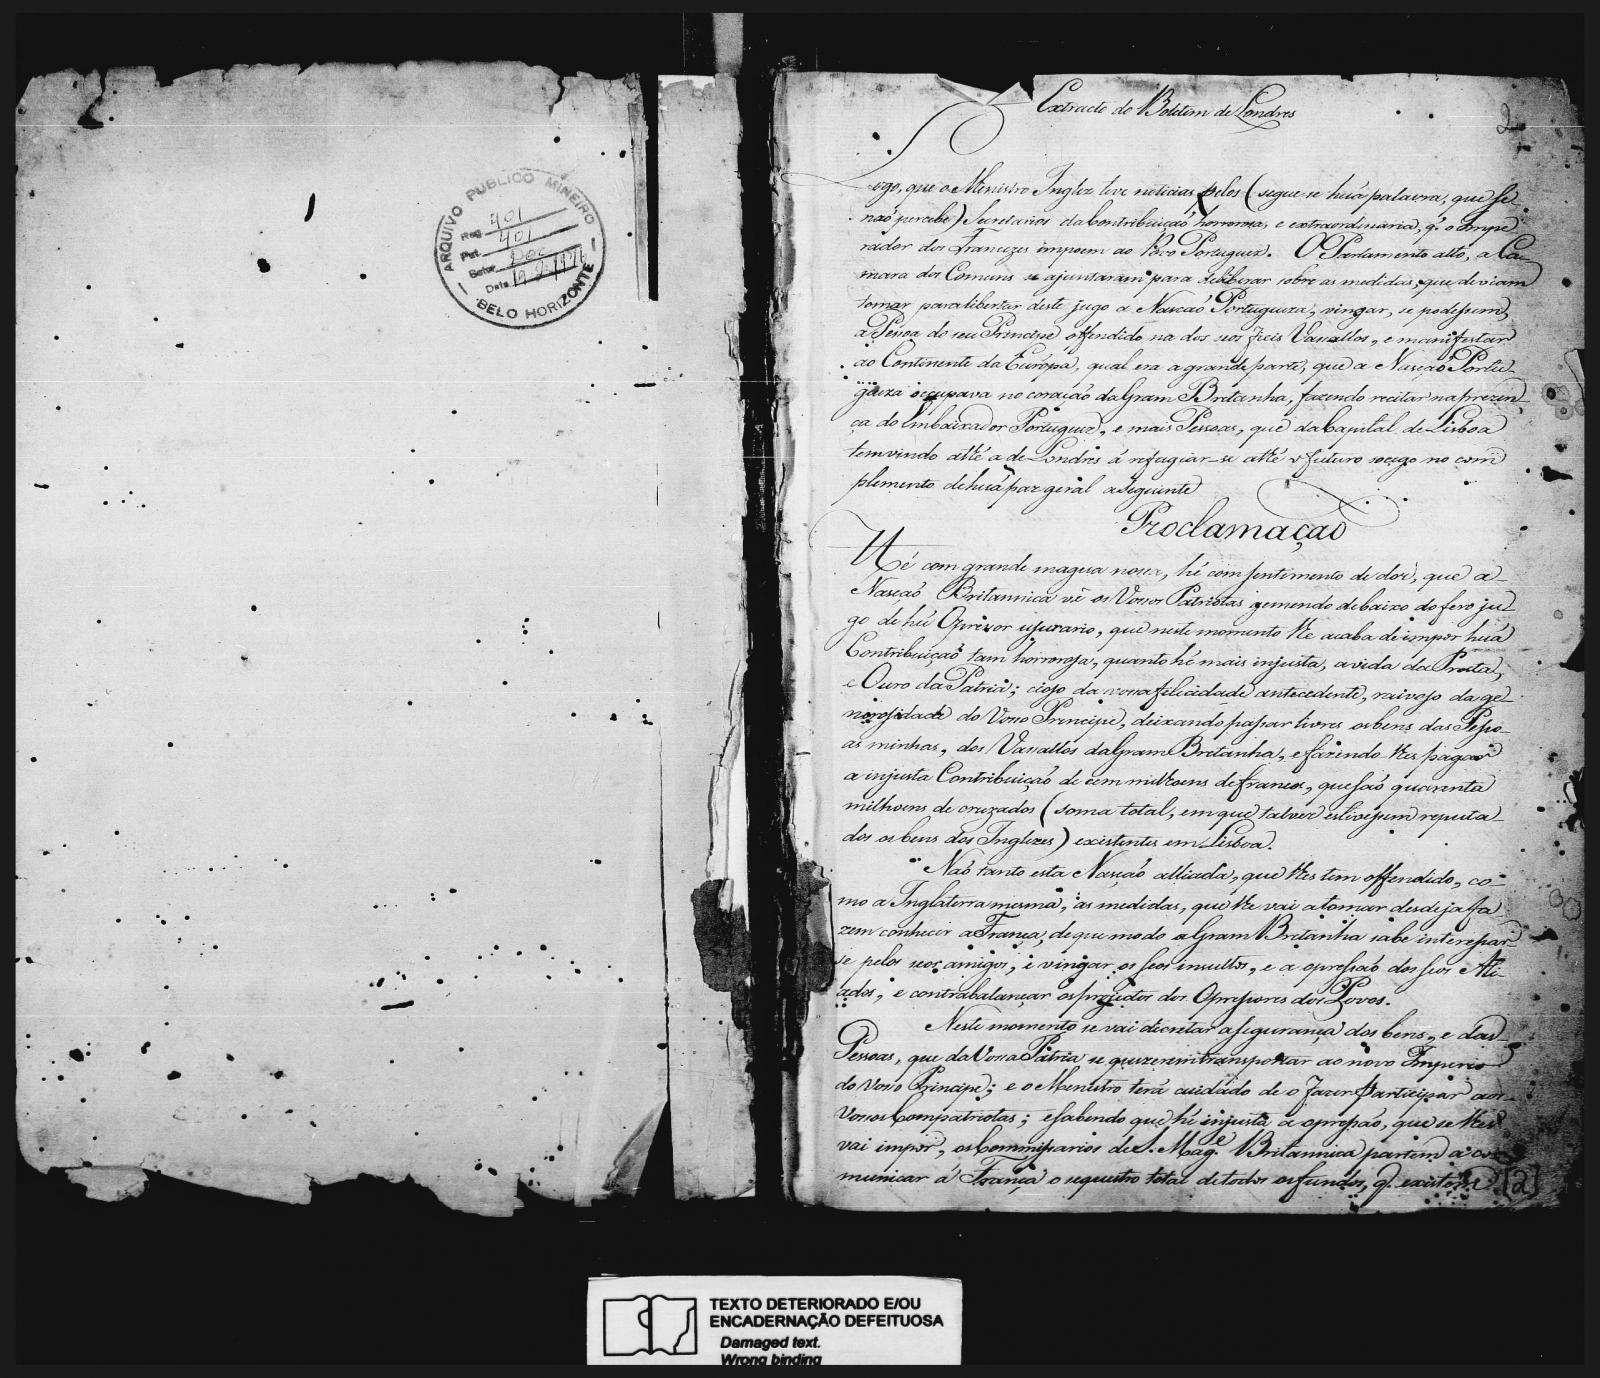 ARQUIVO PUBLICO MINEIRO
Reg. 401
Pct. 401
Setor Doc.
Data
BELO HORIZONTE
Extracto do Boletim de Londres
2
Logo, que o Ministro Inglez teve noticias pelos (segue-se huã palavra, que se
naõ percebe) Secretarios da Contribuiçaõ horrorosa, e extraordinaria, q. o Impe
rador dos Francezes impoem ao Povo Portuguez. O Parlamento alto, a Ca-
mara dos Comuns se ajuntaram para deliberar sobre as medidas, que deviam
tomar para libertar deste jugo a Nasçaõ Portugueza, vingar, se podessem,
a Pessoa do seu Principe offendido na dos seos fieis Vassallos, e manifestar
ao Continente da Európa, qual era a grande parte, que a Nasçaõ Portu-
gueza occupava no coração da Gram Bretanha, fazendo recitar na prezen-
ça do Embaixador Portuguez, e mais Pessoas, que da Capital de Lisboa
tem vindo atté a de Londres á refugiar-se atté o futuro socego no com
plemento de huã paz geral a seguinte
Proclamaçaõ
Hé com grande magoa nossa, hé com sentimento de dor, que a-
Nasçaõ Britannica vê os Vossos Patriotas gemendo debaixo do fero ju-
go de hũ Opressor usurario, que neste momento lhe acaba de impor huã
Contribuiçaõ tam horrorosa, quanto hé mais injusta, a vida da Prata,
e Ouro da Patria; cioso da vossa felicidade antecedente, raivoso da ge-
nerosidade do Vosso Principe, deixando passar livres os bens das Pesso-
as minhas, dos Vassallos da Gram Bretanha, e fazendo lhes pagar
a injusta Contribuiçaõ de cem milhoens de francos, que saõ quarenta
milhoens de cruzados (soma total, em que talvez estivessem reputa-
dos os bens dos Inglezes) existentes em Lisboa.
Naõ tanto esta Nasçaõ alliada, que lhes tem offendido, co-
mo a Inglaterra mesma, as medidas, que lhe vai a tomar desde ja fa-
zem conhecer a França, de que modo a Gram Bretanha sabe interessar
se pelos seos amigos, e vingar os seos insultos, e a opressaõ dos seos Ali-
ados, e contrabalançar os projectos dos Opressores dos Povos.
Neste momento se vai decretar a segurança dos bens, e das
Pessoas, que da Vossa Patria se quizerem transportar ao novo Imperio
do Vosso Principe; e o Ministro terá cuidado de o fazer Participar aos
Vossos Compatriotas; e sabendo que hé injusta a opressaõ, que se lhes
vai impor, os Commissarios de S. Mag.e Britannica partem a co-
municar á França o sequestro total de todos os fundos, q. existem
[2]
TEXTO DETERIORADO E/OU
ENCADERNAÇÃO DEFEITUOSA
Damaged text.
Wrong binding